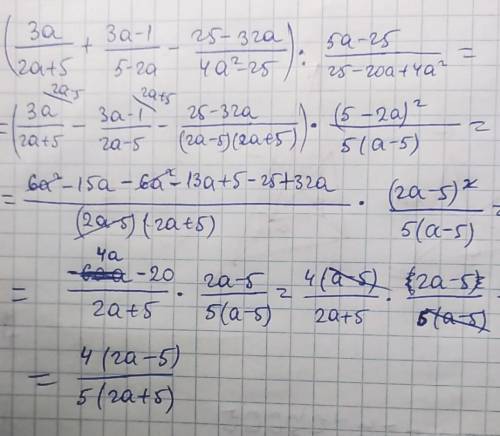 (3a/(2a+5) + (3a-1)/(5-2a) - (25-32a)/(4a²-25)) : (5a-25)/(25-20a+4a²) =
= (3a/(2a+5) ^(2a-5) - (3a-1)/(2a-5) ^(2a+5) - (25-32a)/((2a-5)(2a+5))) · (5-2a)²/(5(a-5)) =
= (6a²-15a-6a²-13a+5-25+32a)/((2a-5)(2a+5)) · (2a-5)²/(5(a-5)) =
= (4a-20)/(2a+5) · (2a-5)/(5(a-5)) = 4(a-5)/(2a+5) · (2a-5)/(5(a-5))
= 4(2a-5)/(5(2a+5))